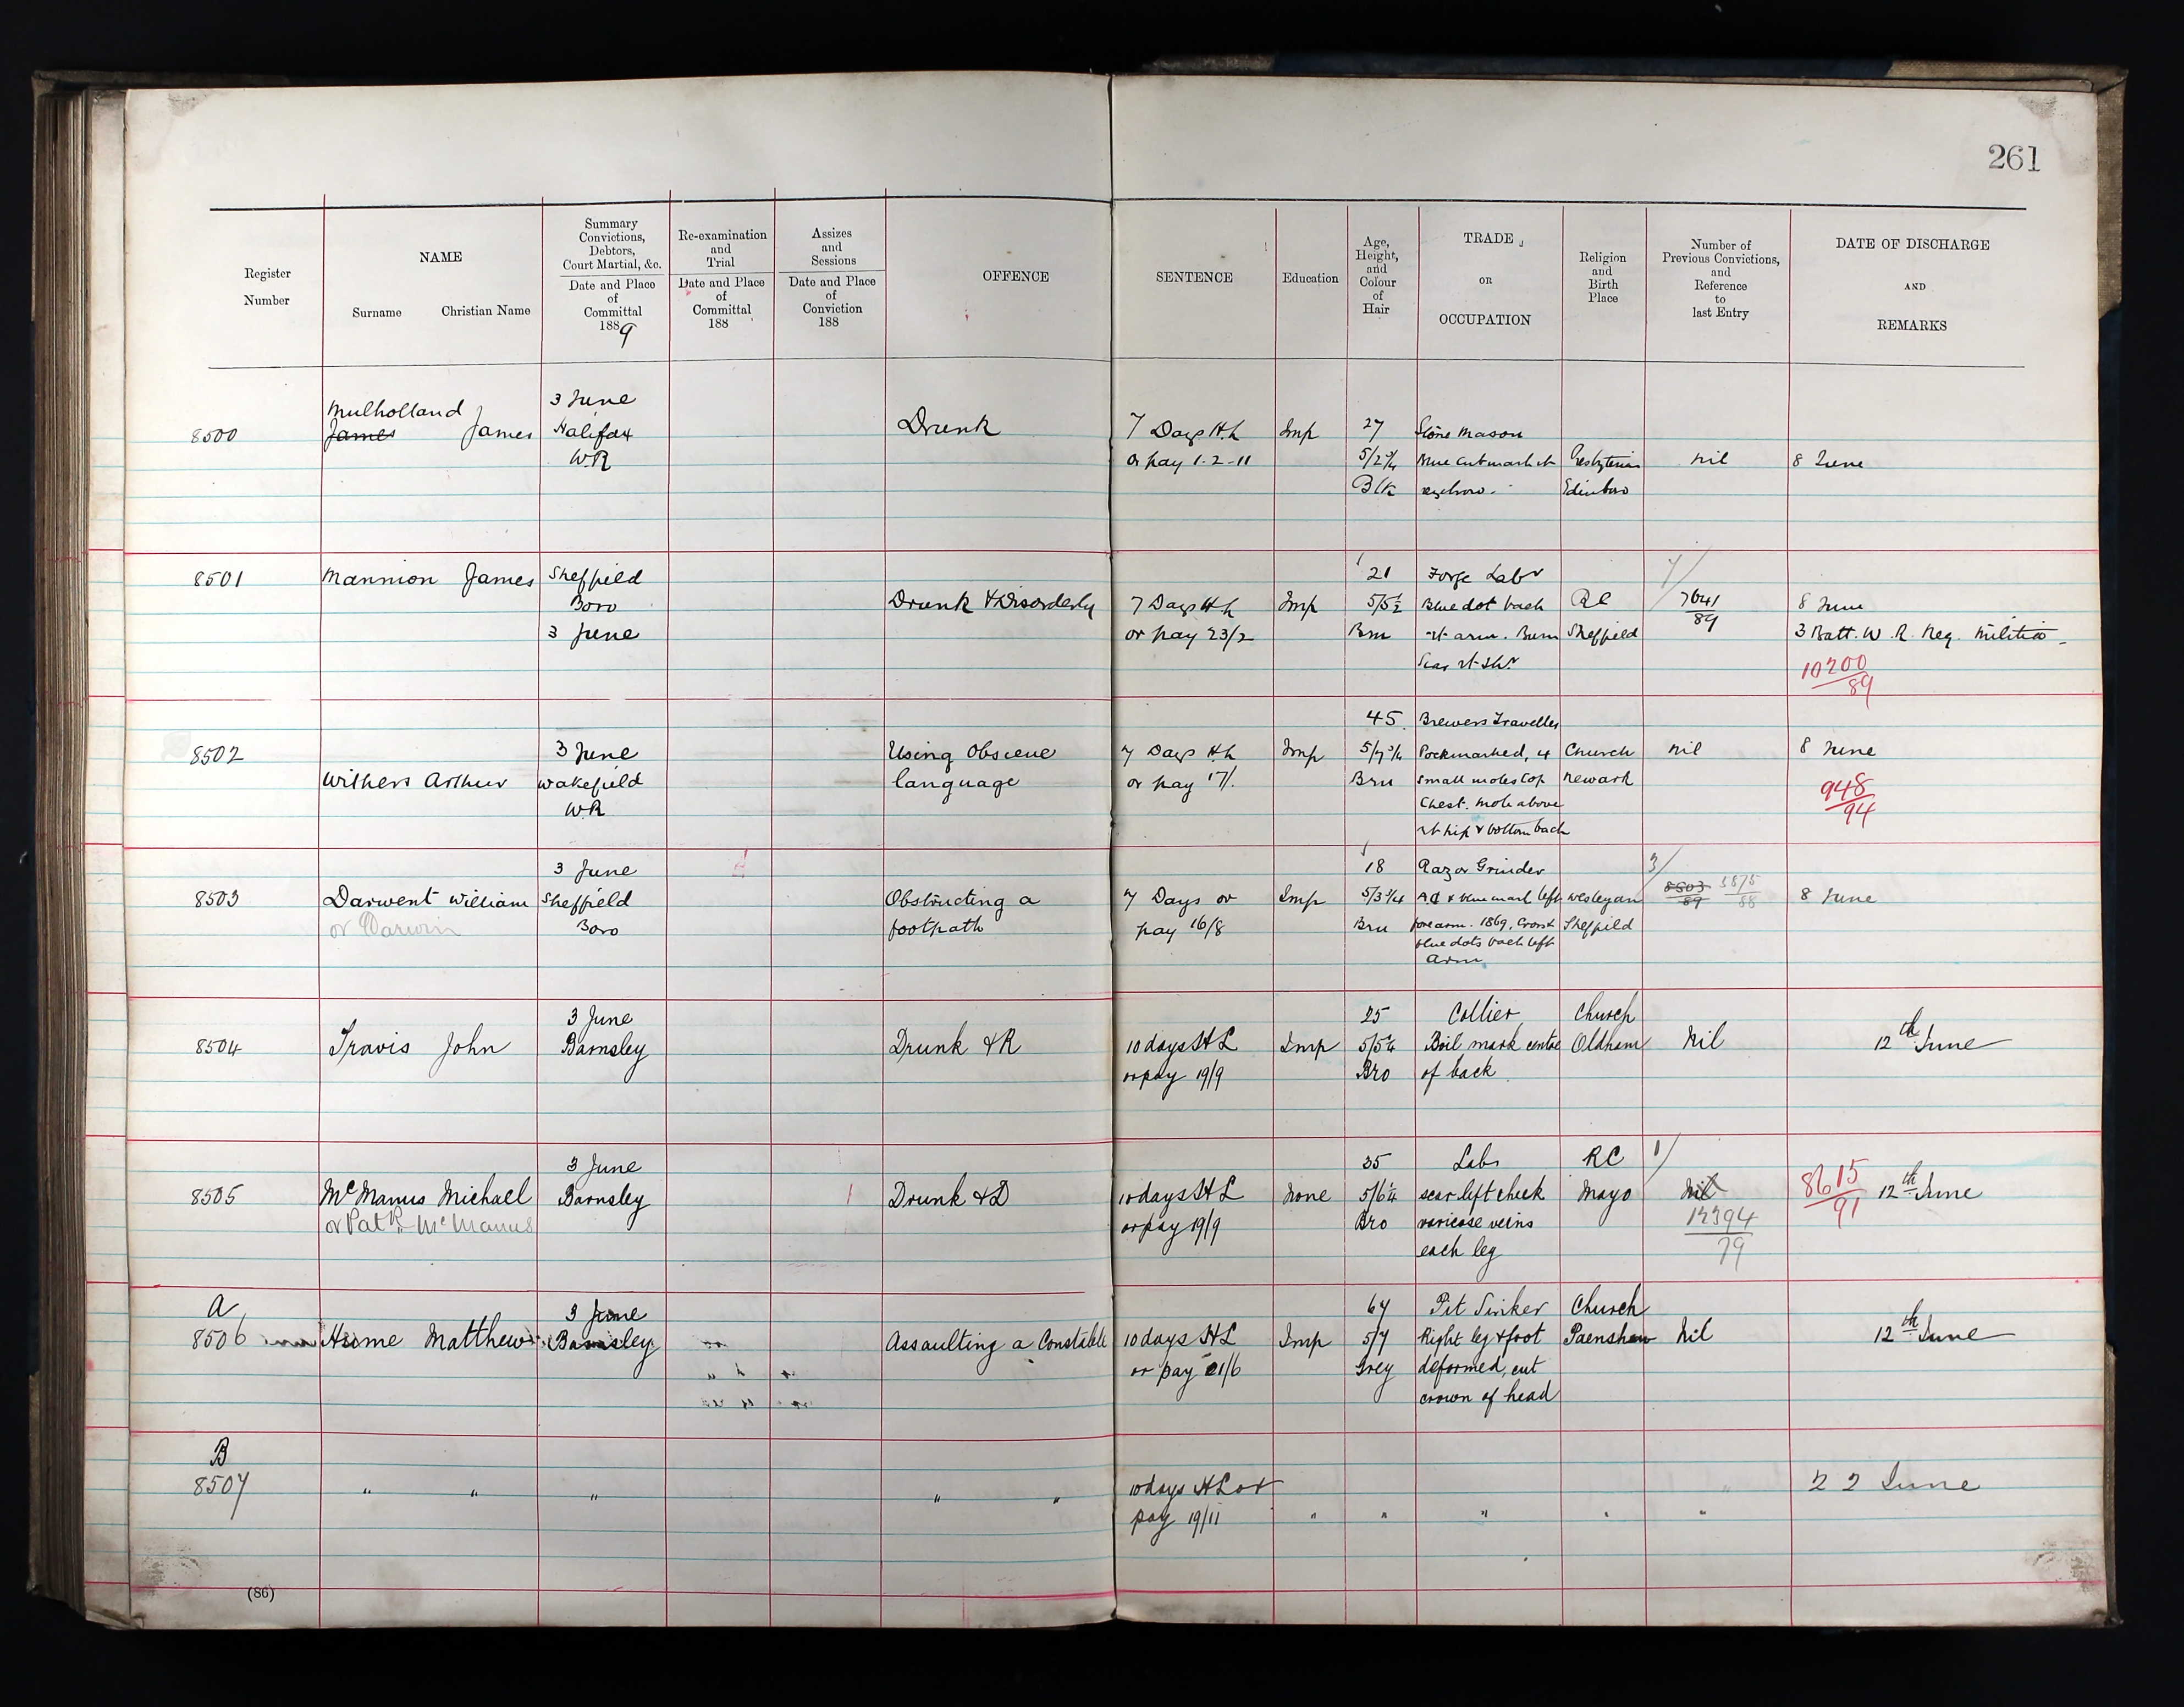 261
Register
Number
NAME
Surname Christian Name
Summary
Convictions,
Debtors,
Court Martial, &c.
Date and Place
of
Committal
1889
Re-examination
and
Trial
Date and Place
of
Committal
188
Assizes
and
Sessions
Date and Place
of
Conviction
188
OFFENCE
SENTENCE
Education
Age,
Height,
and
Colour
of
Hair
TRADE
OR
OCCUPATION
Religion
and
Birth
Place
Number of
Previous Convictions,
and
Reference
to
last Entry
DATE OF DISCHARGE
AND
REMARKS
8500
Mulholland
James James
3 June
Halifax
W.R
Drunk
7 Days H.L
or pay 1-2-11
Imp
27
5/2¾
Blk
Stone Mason
Blue cut mark rt
eyebrow.
Presbyterian
Edinboro
Nil
8 June
8501
Mannion James
Sheffield
Boro
3 June
Drunk & Disorderly
7 Days H.L
or pay 23/2
Imp
21
5/5½
Brn
Forge Labr
Blue dot back
rt arm. Burn
Scar rt shr
RC
Sheffield
7/
7641
89
8 June
3 Batt. W. R. Reg. Militia
10200
89
8502
Withers Arthur
3 June
Wakefield
W.R
Using Obscene
language
7 Days H.L
or pay 17/.
Imp
45
5/7¾
Brn
Brewers Traveller
Pockmarked, 4
small moles top
Chest. Mole above
rt hip & bottom back
Church
Newark
Nil
8 June
948
94
8503
Darwent William
or Darwin
3 June
Sheffield
Boro
Obstructing a
footpath
7 Days or
pay 16/8
Imp
18
5/3¾
Brn
Razor Grinder
AD & blue mark left
forearm. 1869. Cross &
blue dots back left
arm
Wesleyan
Sheffield
3/
8503
89
3875
88
8 June
8504
Travis John
3 June
Barnsley
Drunk & R
10 days H L
or pay 19/9
Imp
25
5/5¼
Bro
Collier
Boil mark centre
of back
Church
Oldham
Nil
12th June
8505
McManus Michael
or Patk McManus
3 June
Barnsley
Drunk & D
10 days H L
or pay 19/9
None
35
5/6¼
Bro
Labr
scar left cheek
varicose veins
each leg
RC
Mayo
1/
Nil
12394
79
8615
91
12th June
A
8506
Hume Matthew
3 June
Barnsley
Assaulting a Constable
10 days H L
or pay 21/6
Imp
67
5/7
Grey
Pit Sinker
Right leg & foot
deformed, cut
crown of head
Church
Painshaw
Nil
12th June
B
8507
" " " " "
10 days H L or
pay 19/11
" " " " "
22 June
(86)